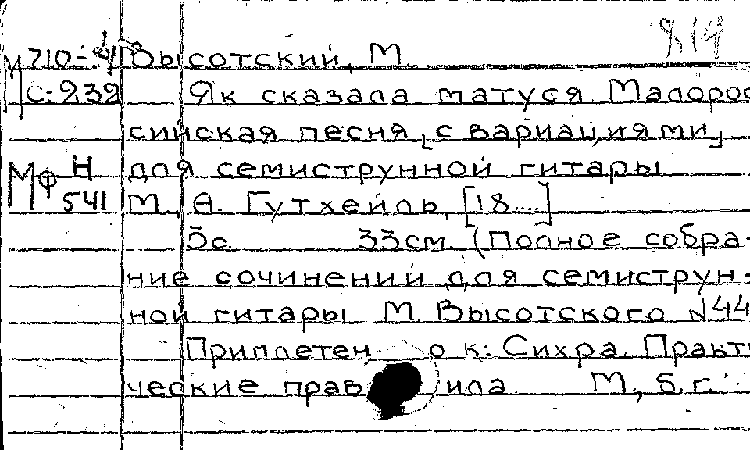 М 710-4 Высотский, М. 814
С: 939 Як сказала матуся. Малорос
сийская песня [с вариациями]
Мф Н для семиструнной гитары
541 М., А. Гутхейль, [18...]
3с. 33см. (Полное собра-
ние сочинений для семиструн-
ной гитары М. Высотского №44
Приплетено к: Сихра. Практи
ческие правила М., б.г.